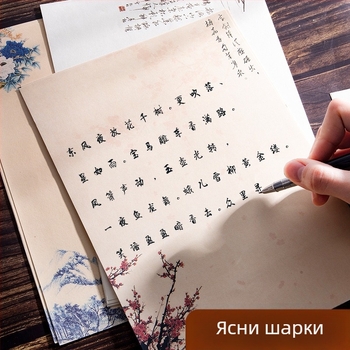 东风夜放花千树 更吹落、
星如雨。宝马雕车香满路。
凤箫声动，玉壶光转，
一夜鱼龙舞。蛾儿雪柳黄金缕。
笑语盈盈暗香去。众里寻
Ясни шарки